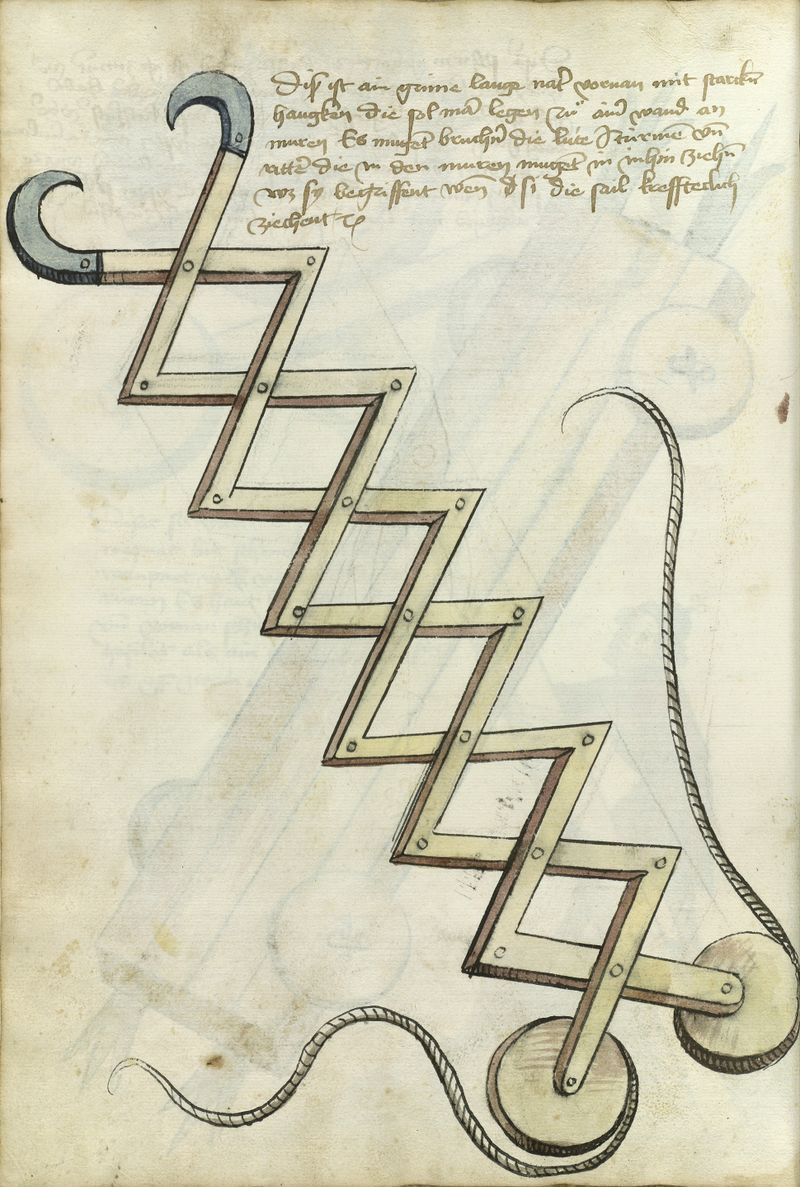 Disz ist ain grime lange nat vornan mit starcken
haugken die sol man legen zu ainer wand an
muren Es muget bruchen die lute Stürme vnd
ritter die in den muren muget in inhin ziehen
wz sy begriffent wen d si die sail krefftecliche
ziechent